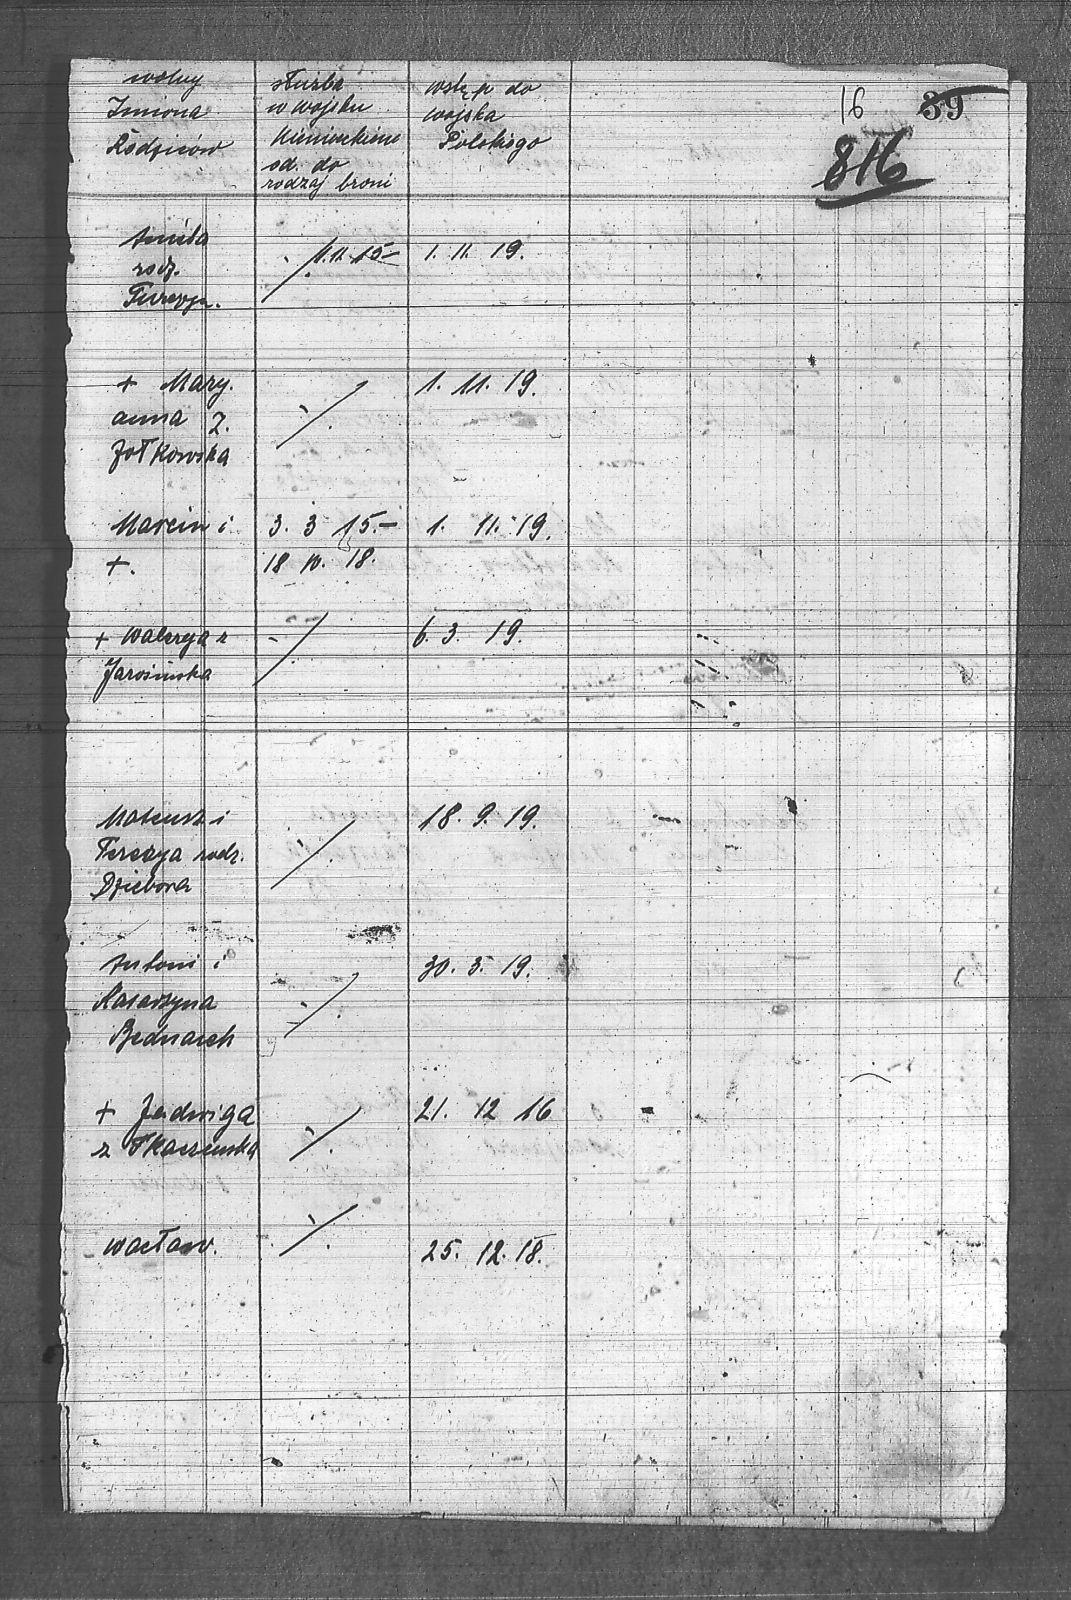 wolny
Imiona
Rodziców
służba
w wojsku
niemieckiem
od. do
rodzaj broni
wstęp do
wojska
Polskiego
16 39
816
rodz.
1.11.15– 1. 11. 19.
+ Mary.
anna z.
Żołkowska
1. 11. 19.
Marcin i
+.
3. 3 15.–
18 10. 18.
1. 11. 19.
+ Walerya z
Jarosinska
6. 3. 19.
Mateusz i
Terezya rodz.
Dziebora
18. 9. 19.
Antoni i
Katarzyna
Bednarek
30. 3. 19.
+ Jadwiga
z Tkaczenska
21. 12 16
Wacław.
25. 12. 18.